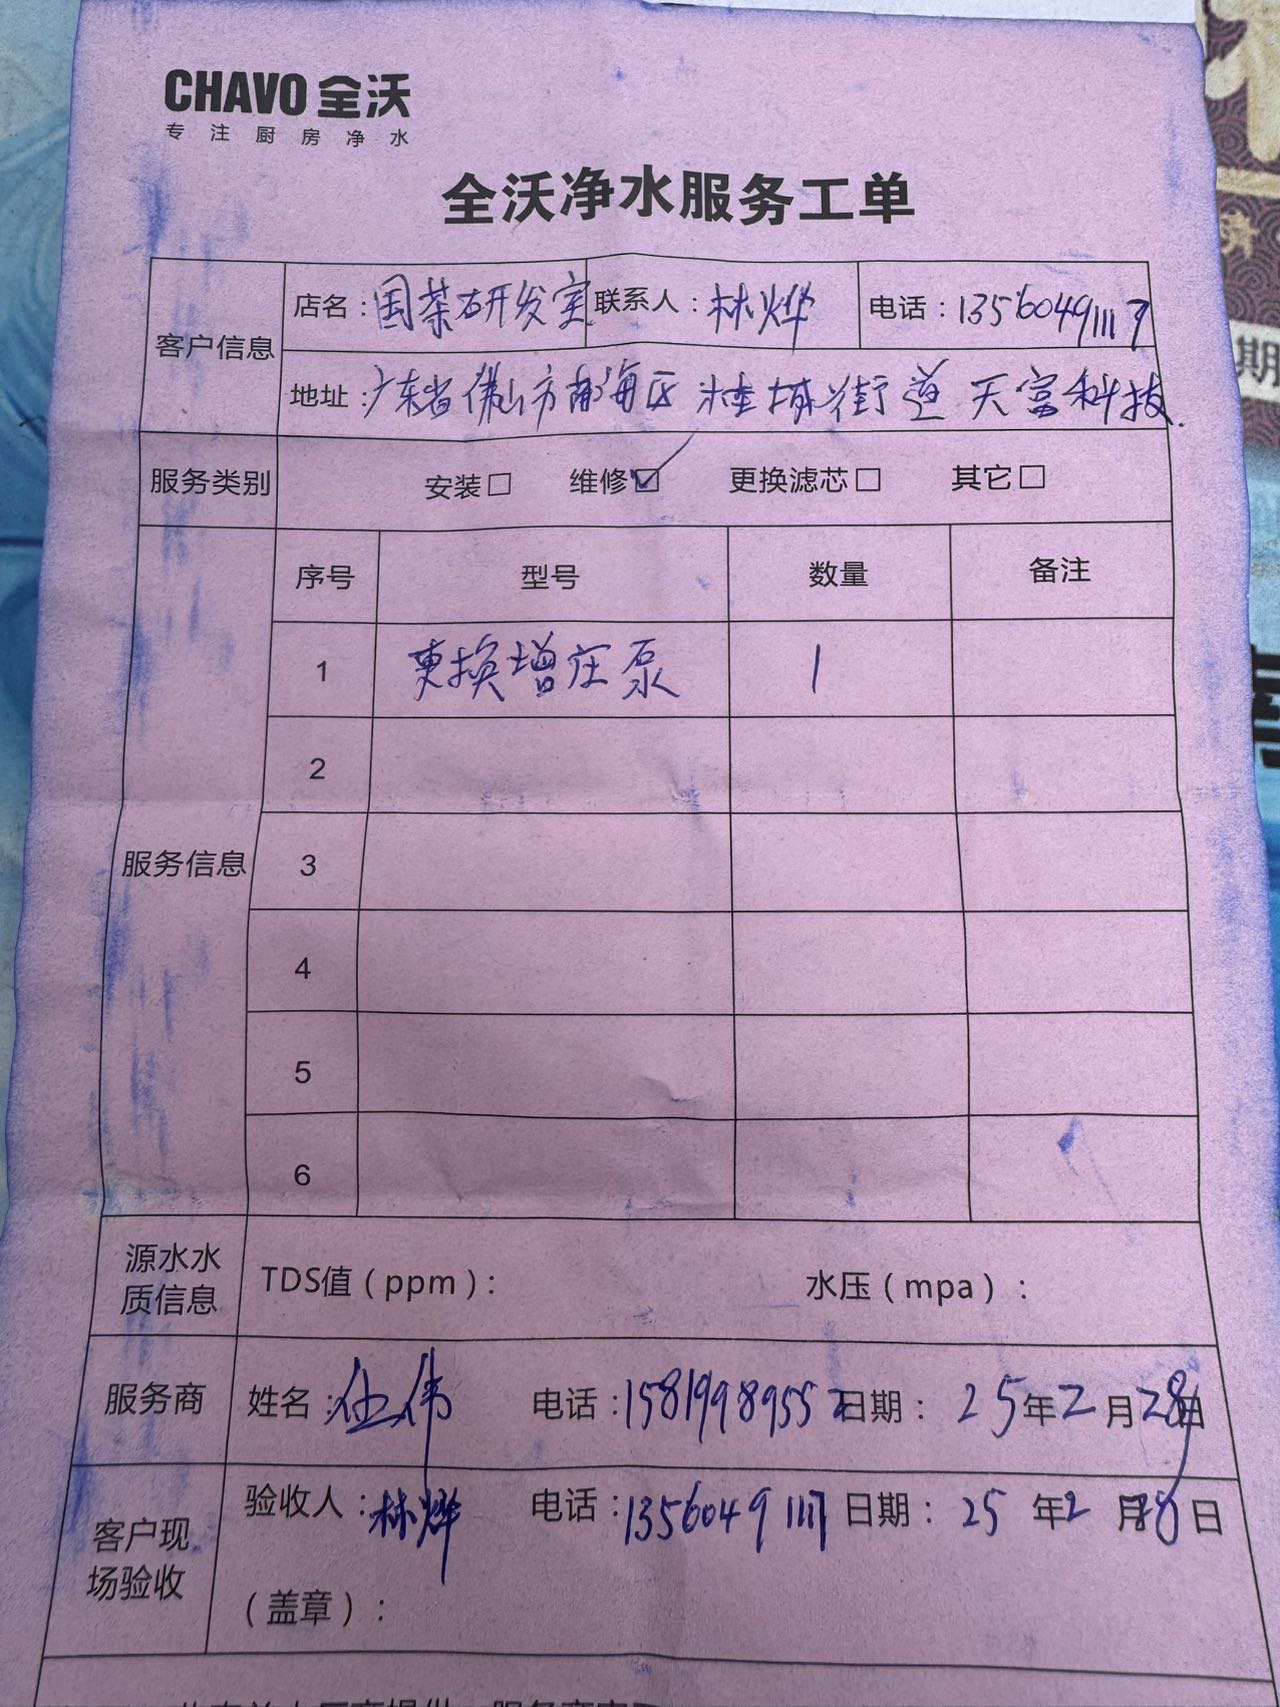 CHAVO 全沃
专注厨房净水
全沃净水服务工单
客户信息
店名：国茶研发室 联系人：林烨 电话：13560491117
地址：广东省佛山市南海区桂城街道天富科技
服务类别 安装□ 维修☑ 更换滤芯□ 其它□
服务信息
序号 型号 数量 备注
1 更换增压泵 1
2
3
4
5
6
源水水质信息 TDS值（ppm）： 水压（mpa）：
服务商 姓名：伍伟 电话：15819989552 日期：25年2月28日
客户现场验收 验收人：林烨 电话：13560491117 日期：25年2月28日
（盖章）：